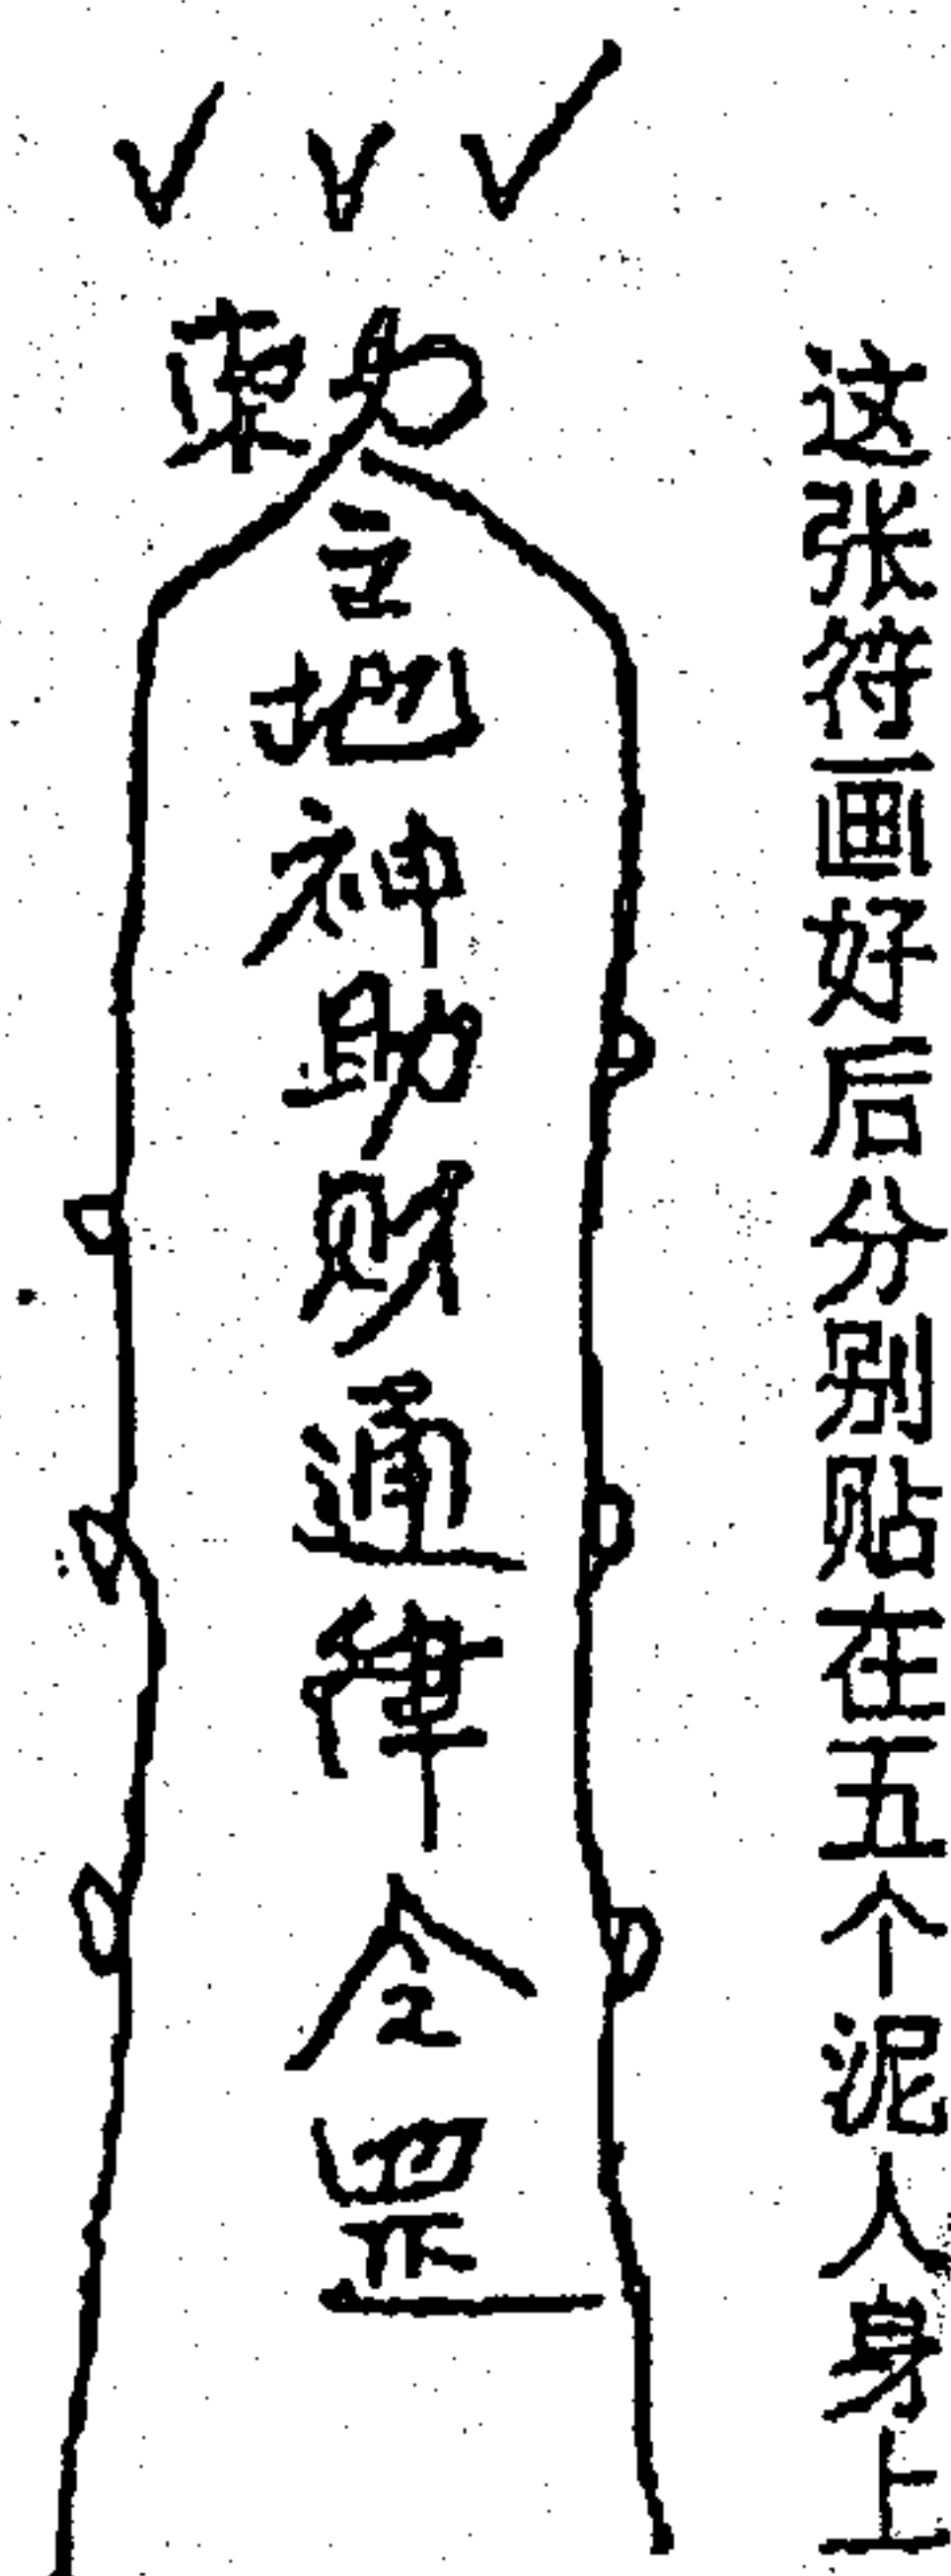 这张符画好后分别贴在五个泥人身上
勅
令地神助财通律令罡